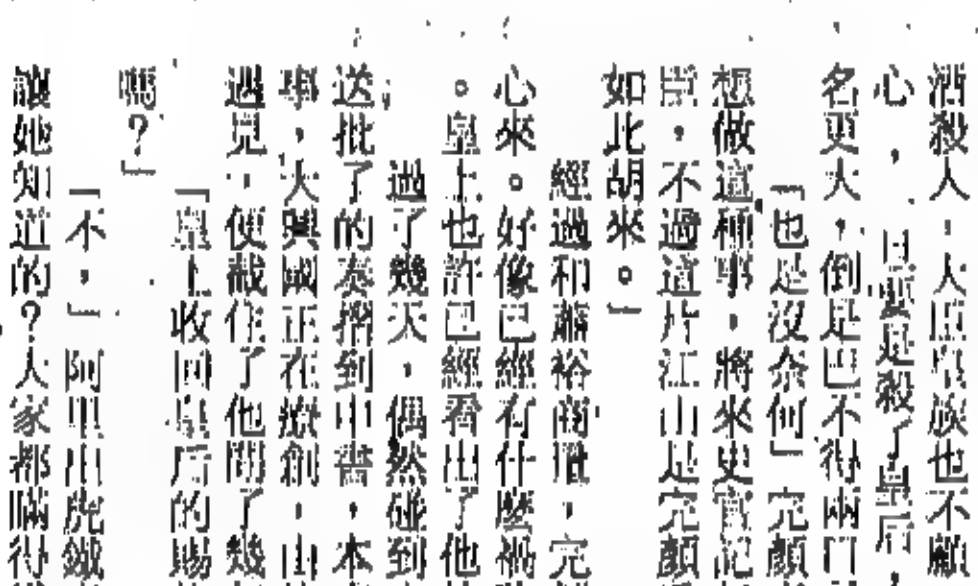 酒殺人，大臣皇族也不顧
心，只要是殺了皇后，
名更大，倒是巴不得兩口
「也是沒奈何」完顏
想做這種事，將來史官記
崇，不過這片江山是完顏
如此胡來。」
經過和蕭裕商量，完
心來。好像已經有什麼禍
。皇上也許已經看出了他
過了幾天，偶然碰到
送批了的奏摺到中書，本
事，大興國正在療創，由
遇見，便截住了他問了幾
「皇上收回皇后的賜
嗎？」
「不，」阿里出虎鐵
讓她知道的？大家都瞞得